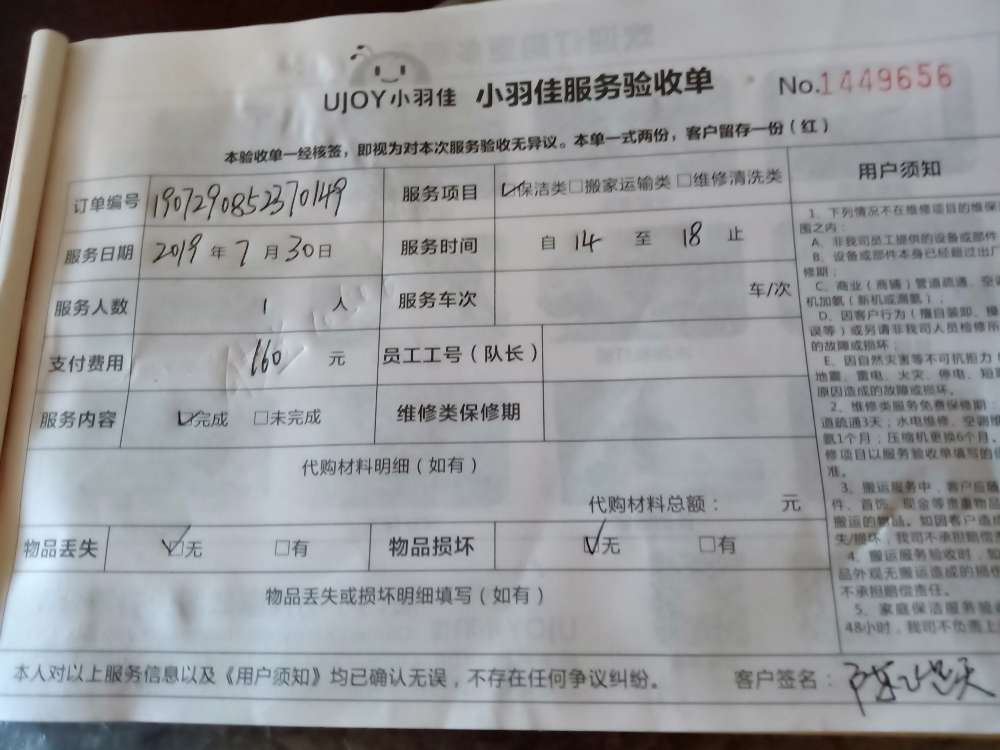 UJOY小羽佳 小羽佳服务验收单 No.1449656
本验收单一经核签，即视为对本次服务验收无异议。本单一式两份，客户留存一份（红）
订单编号 1907290852370149 服务项目 ☑保洁类☐搬家运输类☐维修清洗类
服务日期 2019年7月30日 服务时间 自 14 至 18 止
服务人数 1 人 服务车次 车/次
支付费用 160 元 员工工号（队长）
服务内容 ☑完成 ☐未完成 维修类保修期
代购材料明细（如有）
代购材料总额： 元
物品丢失 ☑无 ☐有 物品损坏 ☑无 ☐有
物品丢失或损坏明细填写（如有）
本人对以上服务信息以及《用户须知》均已确认无误，不存在任何争议纠纷。 客户签名：
用户须知
1、下列情况不在维修项目的维保
围之内：
A、非我司员工提供的设备或部件
B、设备或部件本身已经超过出厂
修期；
C、商业（商铺）管道疏通、空
机加氨（新机或漏氨）；
D、因客户行为（擅自装卸、操
误等）或另请非我司人员检修所
的故障或损坏；
E、因自然灾害等不可抗拒力
地震、雷电、火灾、停电、短
原因造成的故障或损坏。
2、维修类服务免费保修期：
道疏通3天；水电维修、空调维
氨1个月；压缩机更换6个月。
修项目以服务验收单填写的
准。
3、搬运服务中，客户应随
件、首饰、现金等贵重物品
搬运的物品。如因客户造成
失/损坏，我司不承担赔偿责
4、搬运服务验收时，如
品外观无搬运造成的损
不承担赔偿责任。
5、家庭保洁服务验
48小时，我司不负责上